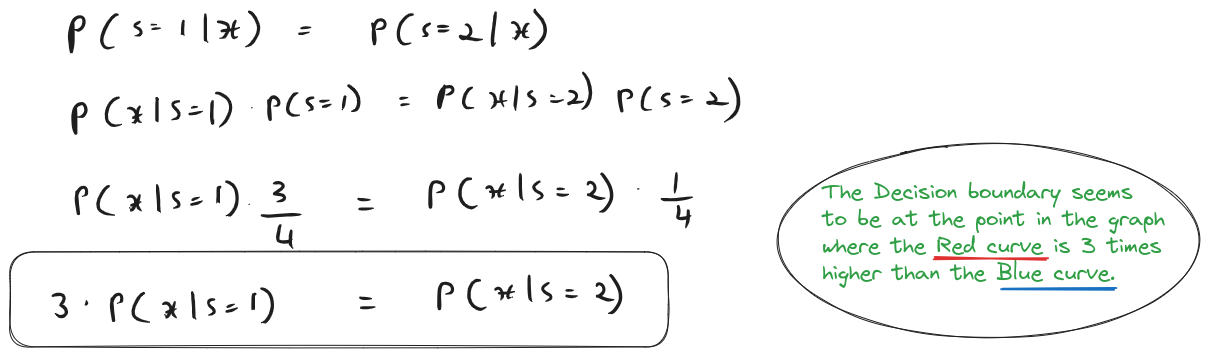 P(s=1|x) = P(s=2|x)
P(x|s=1) · P(s=1) = P(x|s=2) P(s=2)
P(x|s=1) · 3/4 = P(x|s=2) · 1/4
3 · P(x|s=1) = P(x|s=2)
The Decision boundary seems
to be at the point in the graph
where the Red curve is 3 times
higher than the Blue curve.